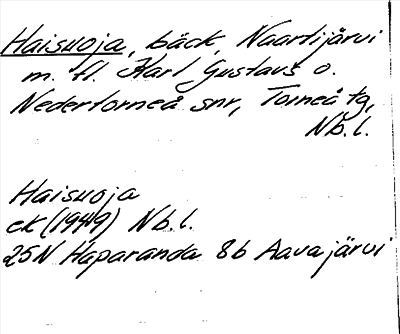 Haisuoja, bäck, Naartijärvi
m. fl. Karl Gustavs o.
Nedertorneå snr, Torneå tg,
Nb.l.
Haisuoja
ek (1949) Nb.l.
25N Haparanda 8b Aavajärvi